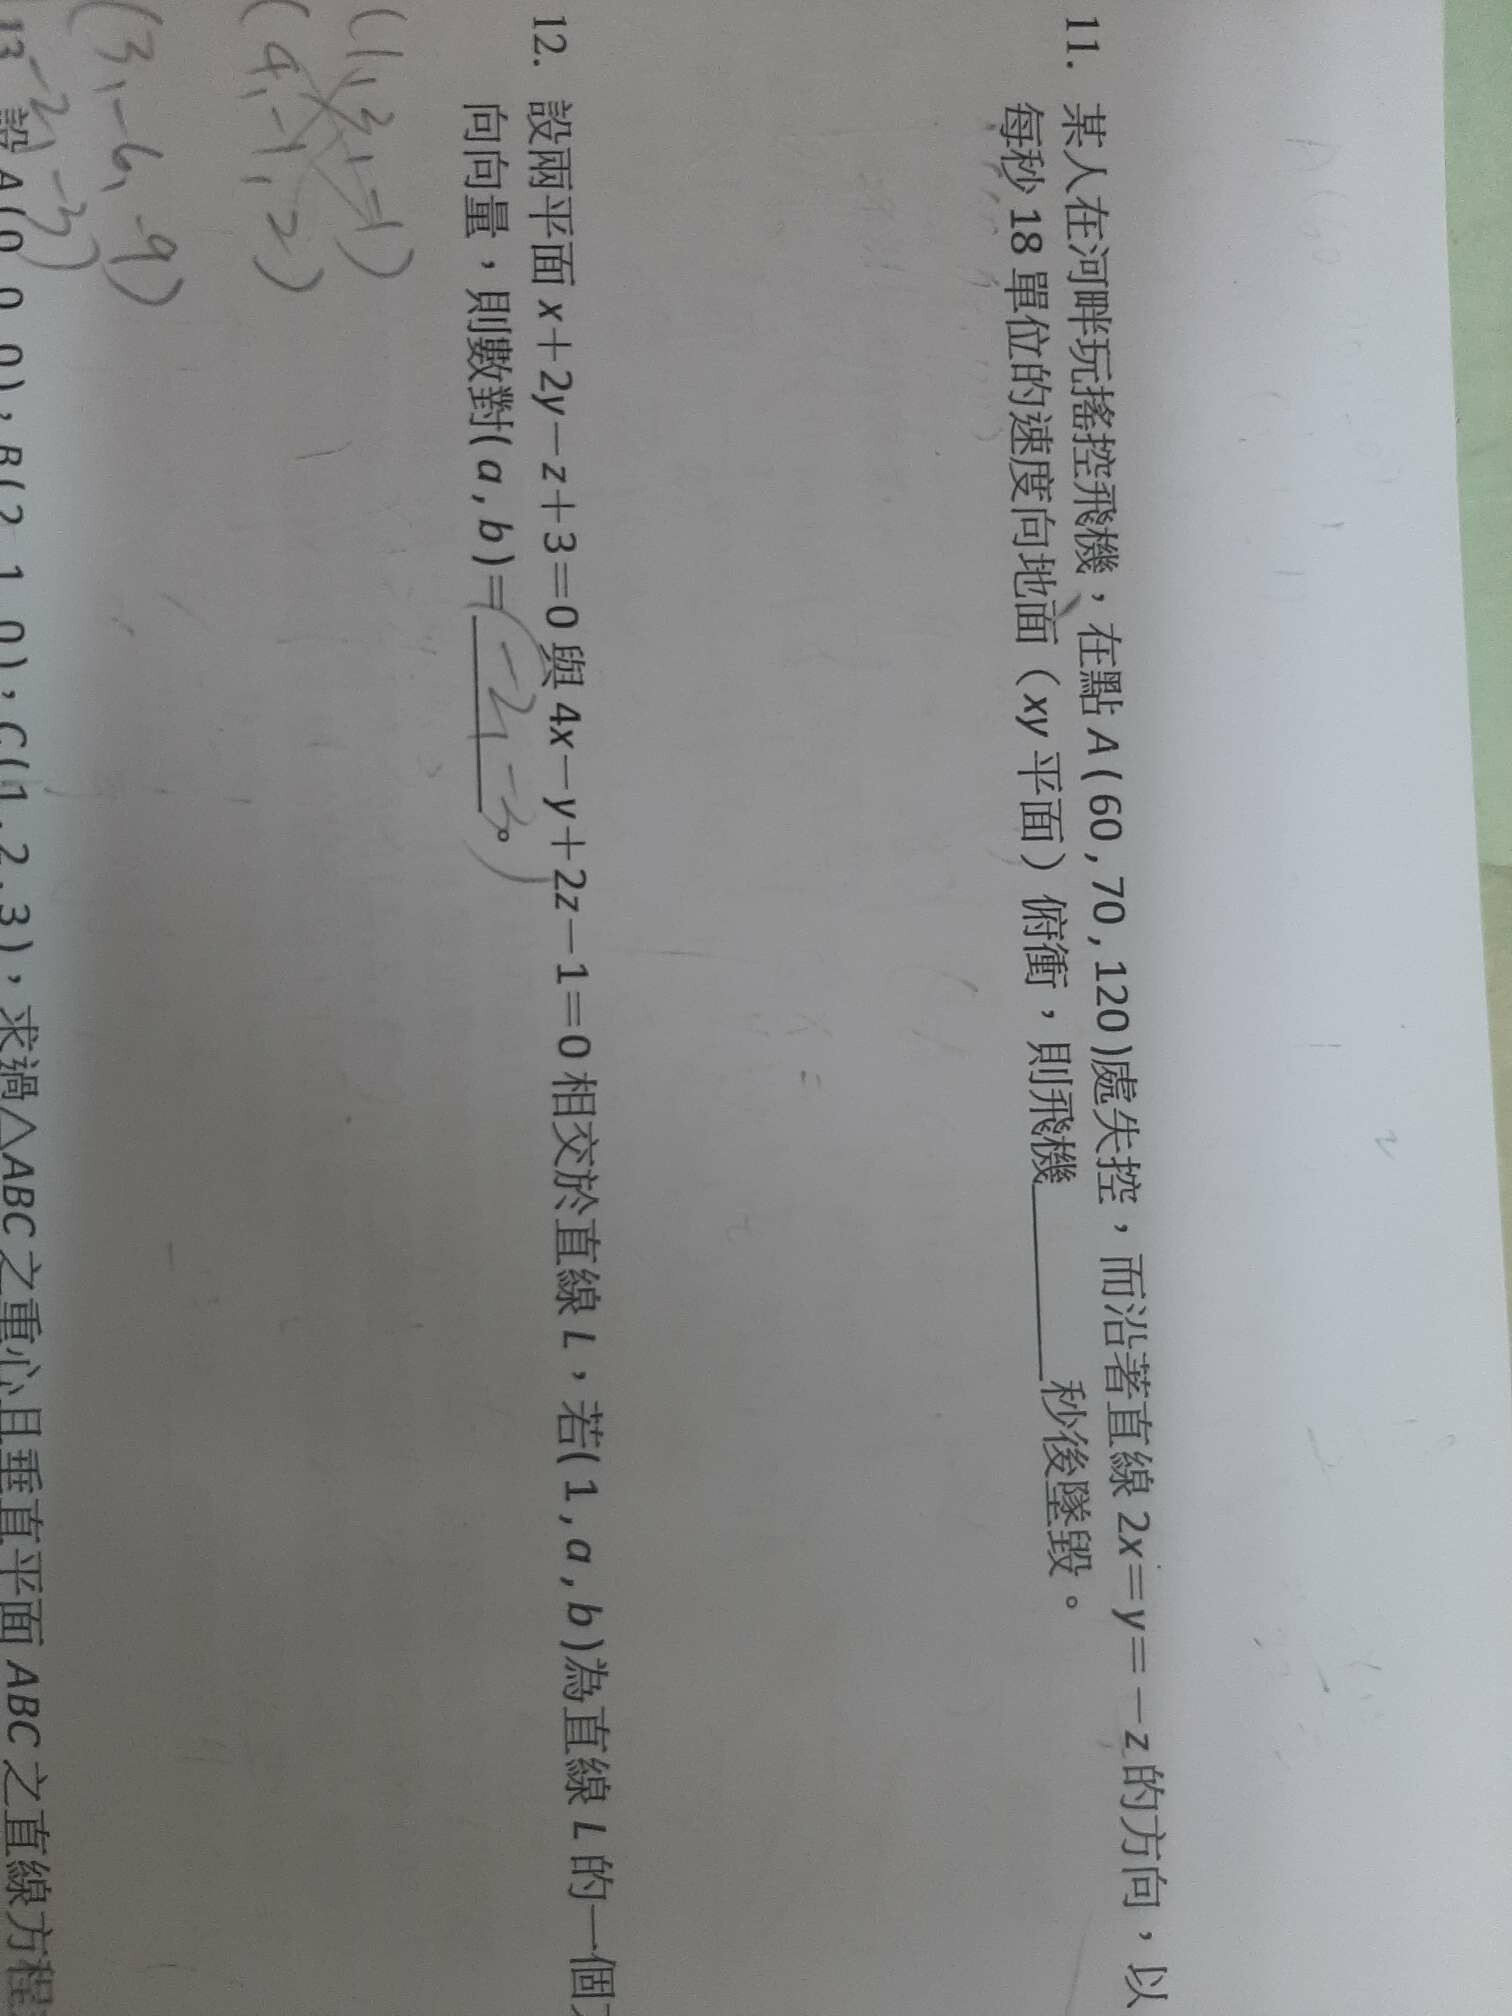 11. 某人在河畔玩搖控飛機，在點 A(60,70,120)處失控，而沿著直線 2x=y=-z 的方向，以
每秒 18 單位的速度向地面（xy 平面）俯衝，則飛機______秒後墜毀。
12. 設兩平面 x+2y-z+3=0 與 4x-y+2z-1=0 相交於直線 L，若(1,a,b)為直線 L 的一個
向向量，則數對(a,b)=(-2,-3)。
(1,2,-1)
(4,-1,2)
(3,-6,-9)
-2,-3)
13 設 A(0 0 0)，B(2 1 0)，C(1,2,3)，求過△ABC 之重心且垂直平面 ABC 之直線方程